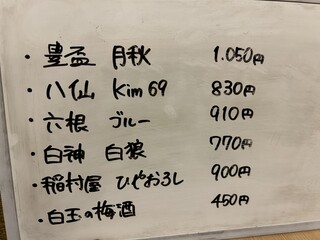 ・豊盃 月秋 1.050円
・八仙 Kim 69 830円
・六根 ブルー 910円
・白神 白狼 770円
・稲村屋 ひやおろし 900円
・白玉の梅酒 450円